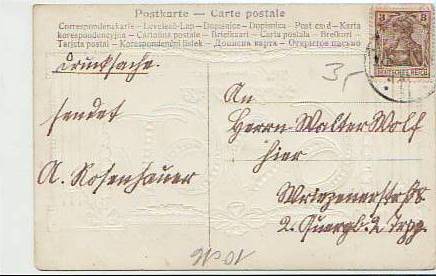 Postkarte — Carte postale
Correspondenzkarte — Levelező-Lap — Dopisnice — Dopisnica — Post card — Karta
korespondencyjna — Cartolina postale — Briefkort — Carta postală — Brefkort
Tarjeta postal — Korespondenční lístek — Дописна карта — Открытое письмо
3 3
DEUTSCHES REICH
Drucksache.
3,-
sendet
A. Rosenhauer
An
Herrn Walter Wolf
hier
Wriezenerstr. 8
2. Quergb. 2 Trpp.